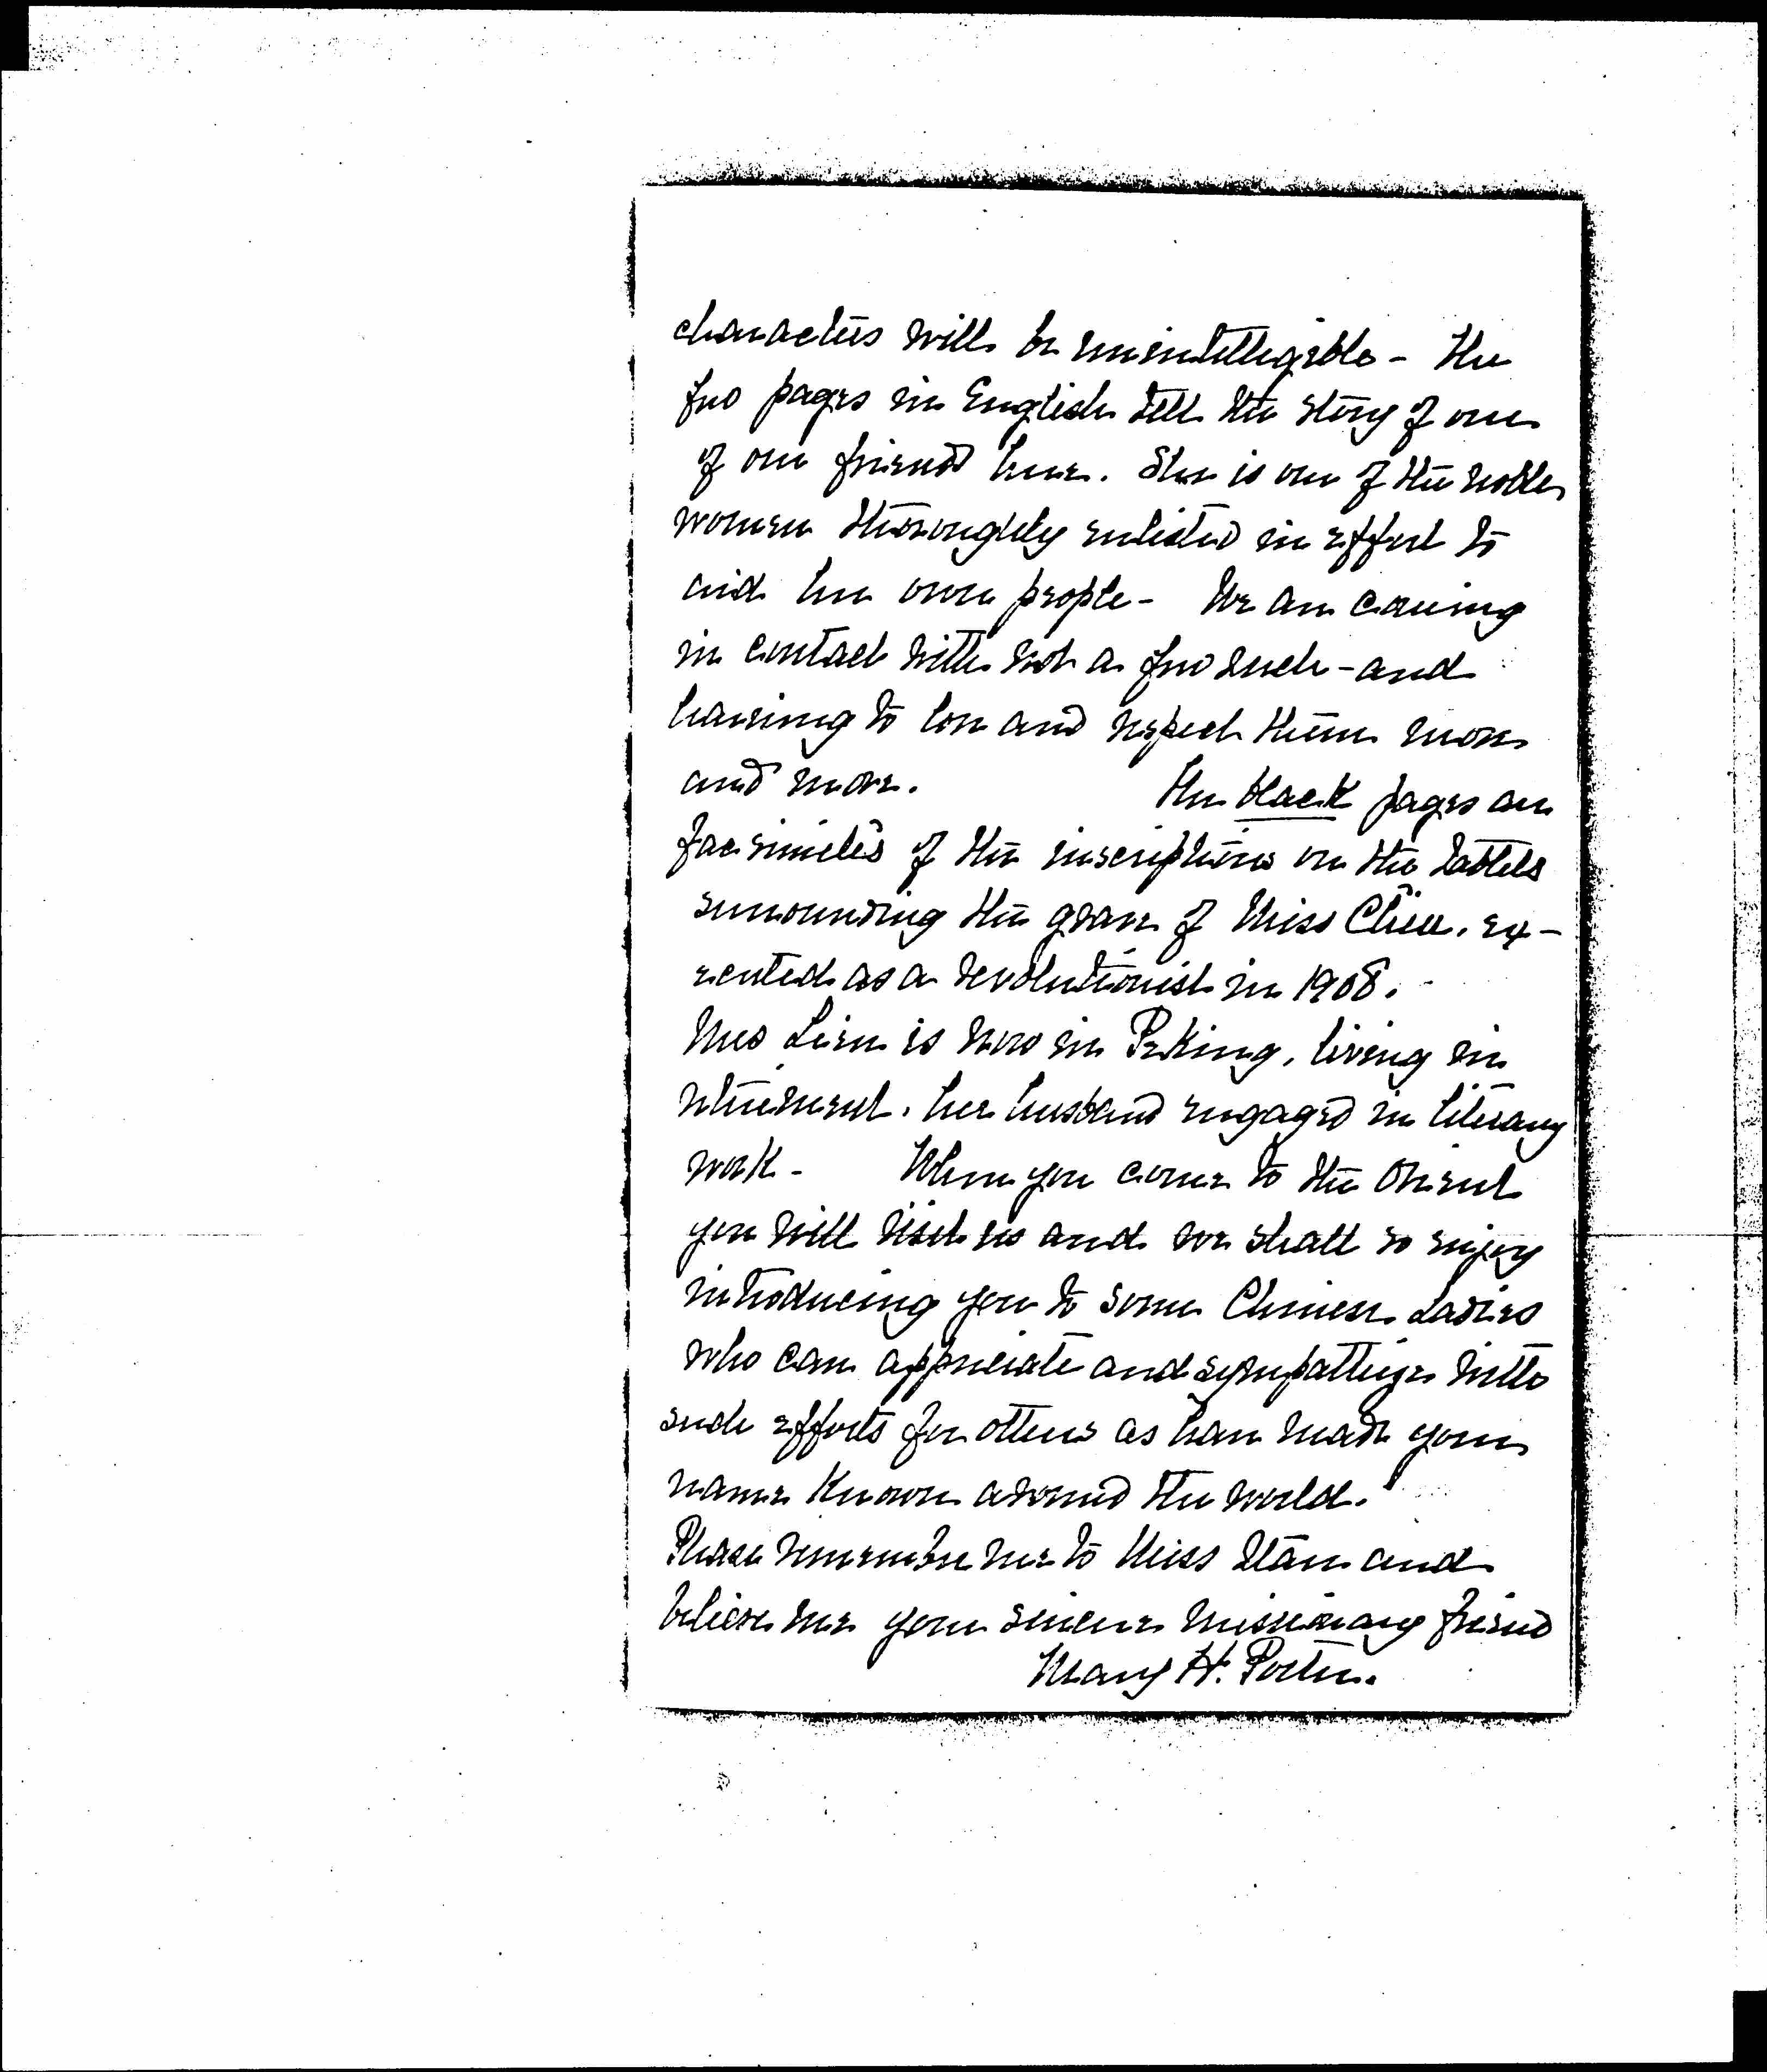 characters will be unintelligible - The
few pages in English tell the story of one
of our friends here. She is one of the noble
women thoroughly enlisted in effort to
aid her own people - We are coming
in contact with not a few such - and
learning to love and respect them more
and more. The black pages are
facsimiles of the inscriptions on the tablets
surrounding the grave of Miss Chiu, ex-
ecuted as a revolutionist in 1908.
Mrs Lien is now in Peking, living in
retirement, her husband engaged in literary
work - When you come to the Orient
you will visit us and we shall so enjoy
introducing you to some Chinese Ladies
who can appreciate and sympathize with
such efforts for others as have made your
name known around the world.
Please remember me to Miss Starr and
believe me your sincere missionary friend
Mary H. Porter.